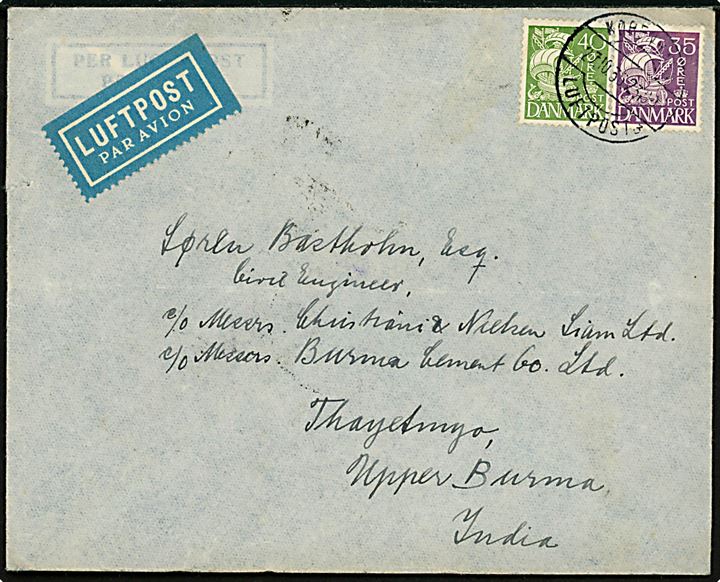 PER LUFTPOST
LUFTPOST
PAR AVION
40
ØRE
POST
DANMARK
35
ØRE
POST
DANMARK
LUFTPOST 3
Søren Bastholm, Esq.
Civil Engineer,
c/o Messrs. Christiani & Nielsen Siam Ltd.
c/o Messrs. Burma Cement Co. Ltd.
Thayetmyo,
Upper Burma
India